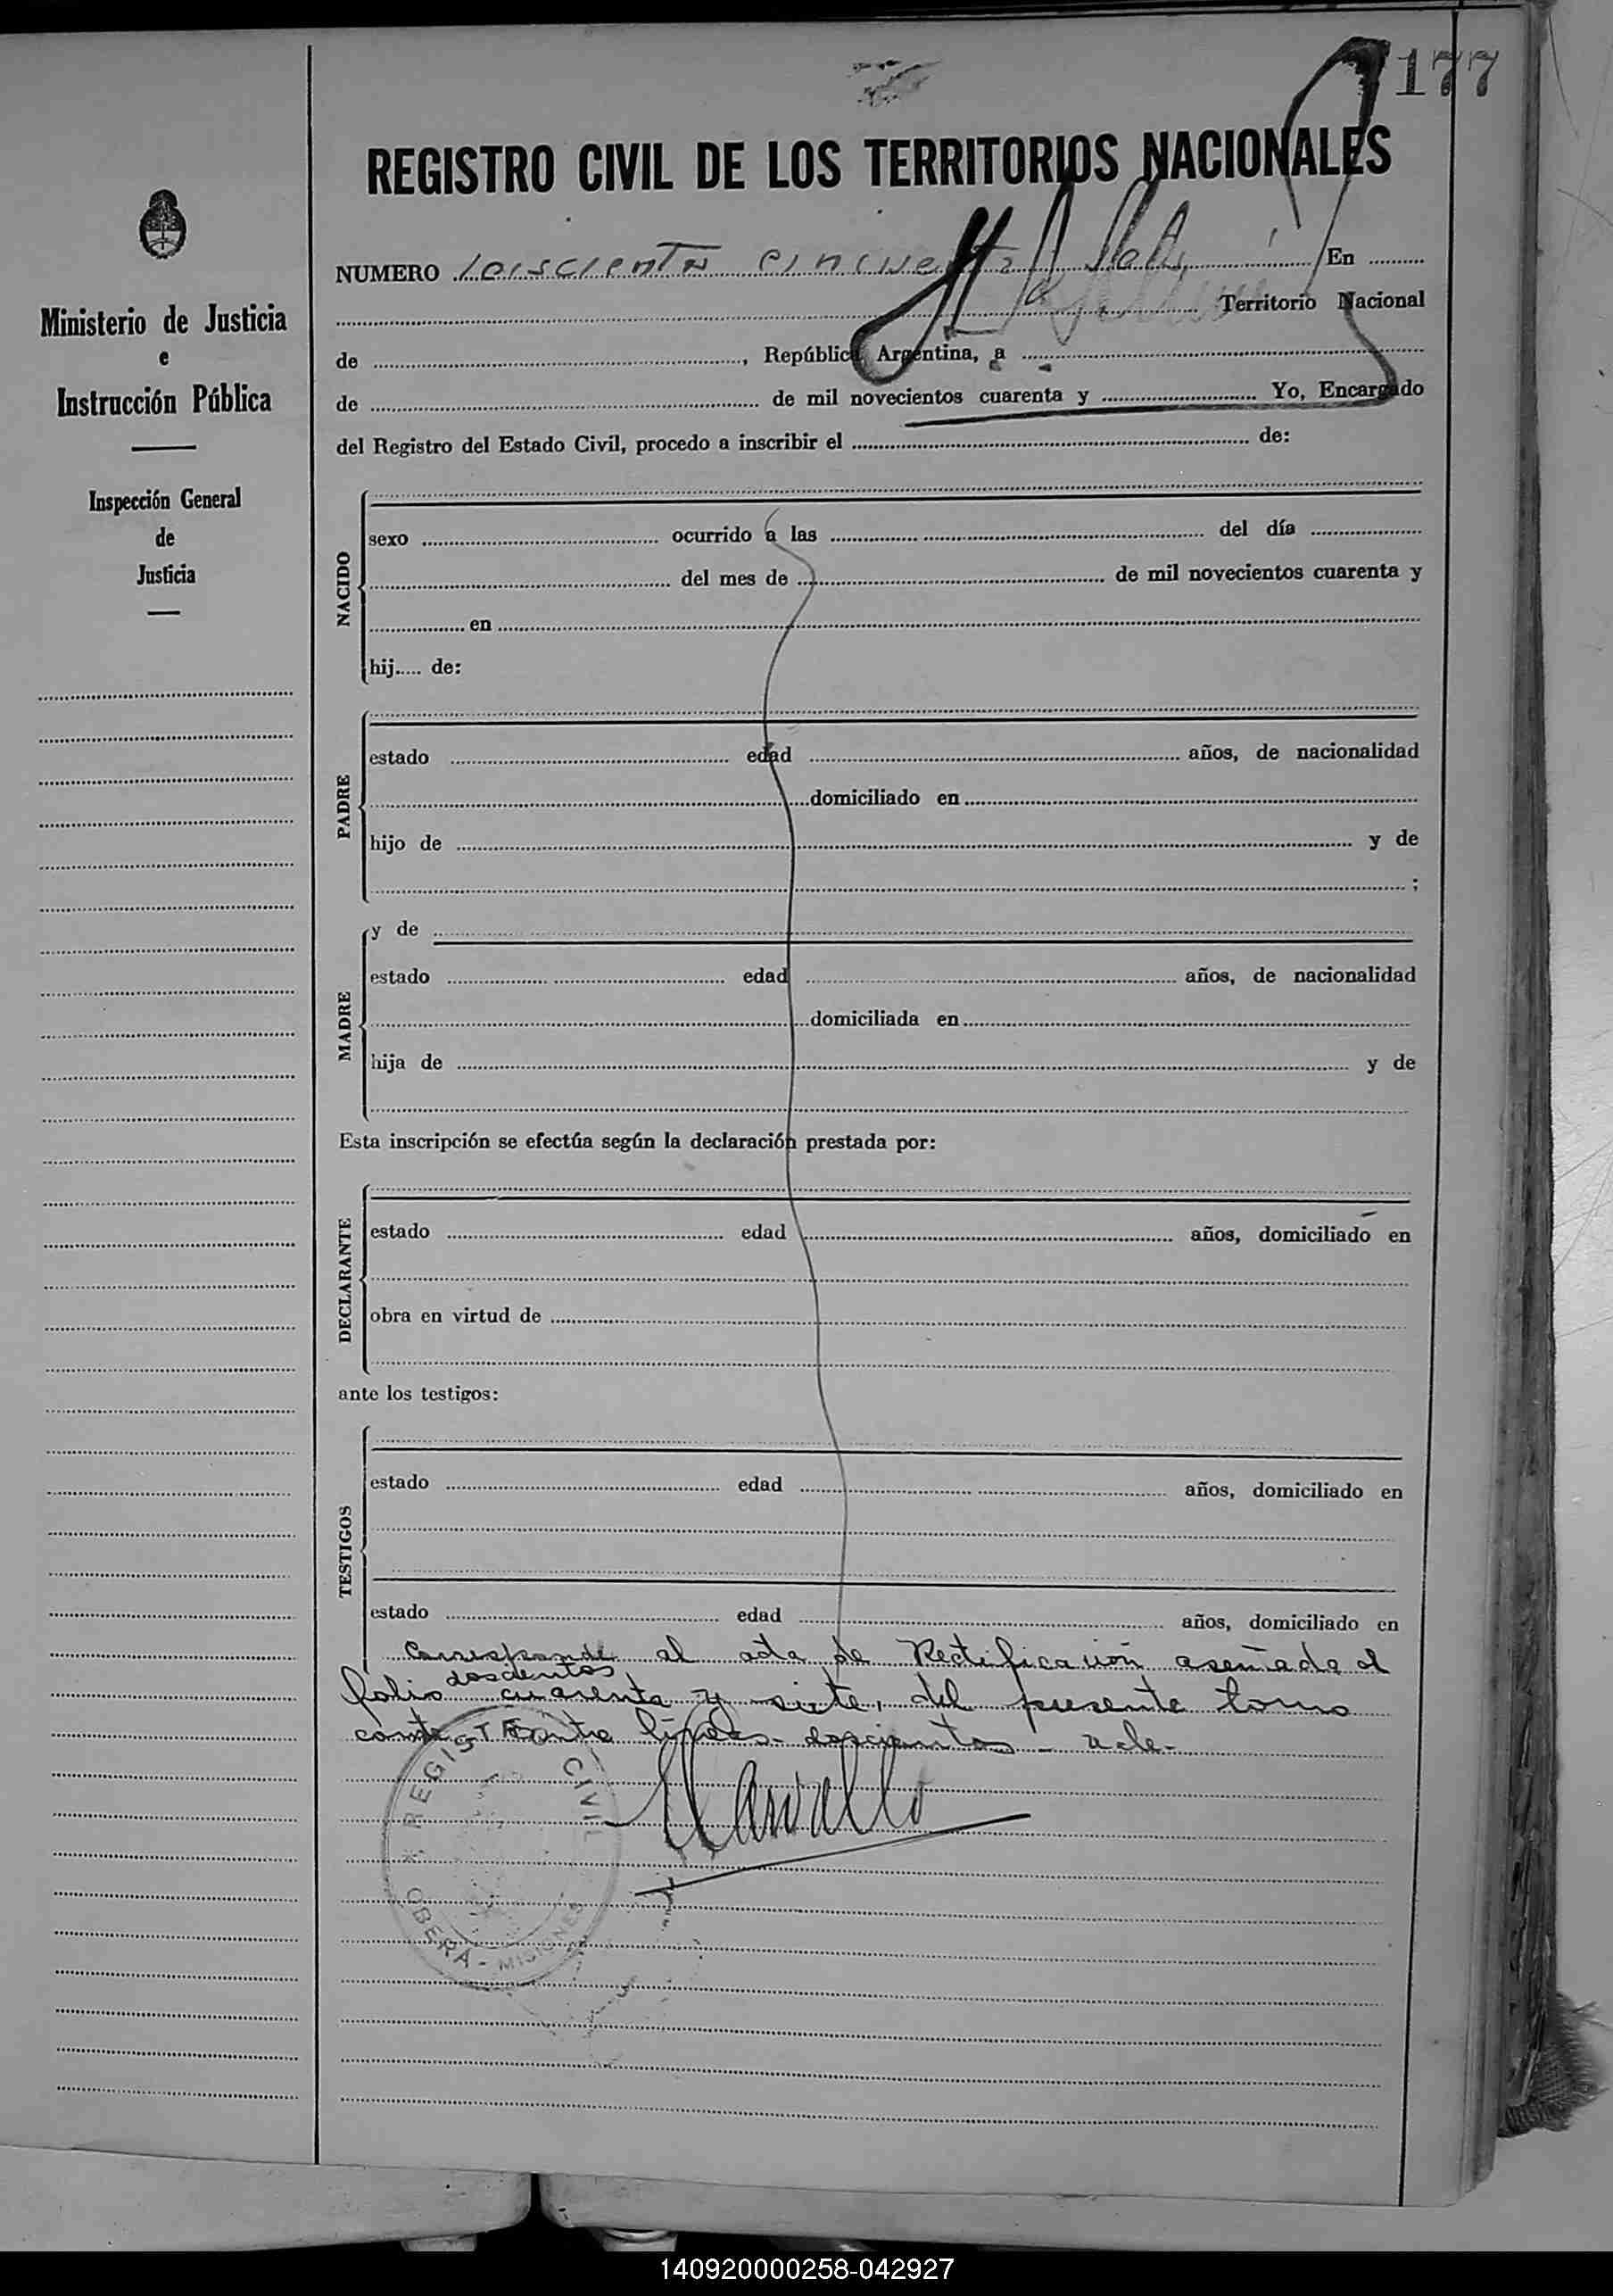 177
REGISTRO CIVIL DE LOS TERRITORIOS NACIONALES
Ministerio de Justicia
e
Instrucción Pública
Inspección General
de
Justicia
NUMERO En
Territorio Nacional
de , República Argentina, a
de de mil novecientos cuarenta y Yo, Encargado
del Registro del Estado Civil, procedo a inscribir el de:
NACIDO
sexo ocurrido a las del día
del mes de de mil novecientos cuarenta y
en
hij..... de:
PADRE
estado edad años, de nacionalidad
domiciliado en
hijo de y de
;
MADRE
y de
estado edad años, de nacionalidad
domiciliada en
hija de y de
Esta inscripción se efectúa según la declaración prestada por:
DECLARANTE
estado edad años, domiciliado en
obra en virtud de
ante los testigos:
TESTIGOS
estado edad años, domiciliado en
estado edad años, domiciliado en
Corresponde al acta de Rectificación asentada al
doscientos
folio cuarenta y siete, del presente tomo
entre líneas - doscientos - vale -
REGISTRO CIVIL
OBERA - MISIONES
140920000258-042927